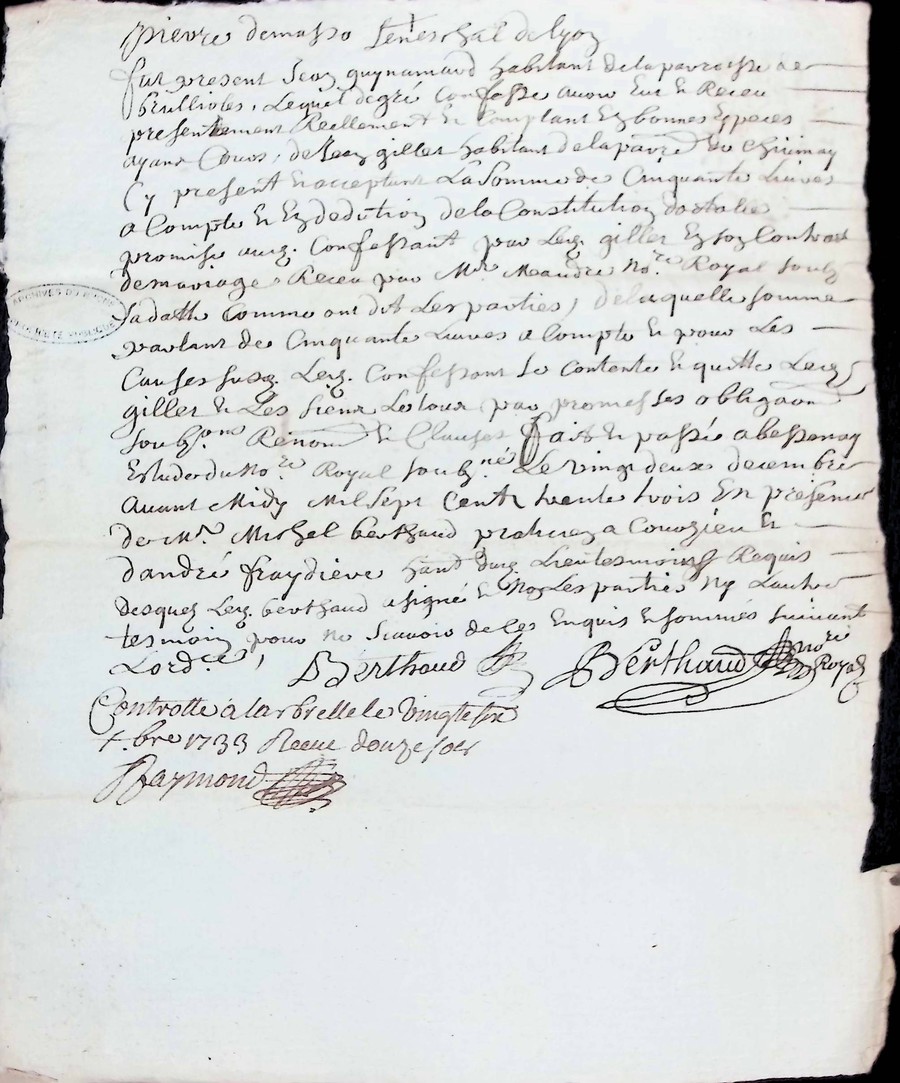 pierre demasso seneschal de lyon
fut present Jean guynamard habitant de la parroisse de
brullioles, Lequel de gré confesse avoir Eu et Receu
presentement Reellement et Comptant En bonnes Especes
ayant Cours, de Jean giller habitant de la parre de
Cy present et acceptant La Somme de Cinquante Livres
a Compte et En dedution de la Constitution dotalle
promise aud. Confessant par Led. giller En son Contract
de mariage Receu par Mre Meandre Nore Royal soubz
sa datte comme ont dit Les parties, de laquelle somme
partant de Cinquante Livres a Compte et pour Les
Causes susd. Led. Confessant se contente et quitte Led.
giller et Les siens Le tour par promesses obligaon
soubson Renonon et Clauses fait et passé a bessenay
Estude du Nore Royal soubzné Le vingt deux decembre
avant Midy Mil sept Cent trente trois En presence
de Mre Michel berthaud praticien a Courzieu et
d'andré fraydiere hant dud. Lieu tesmoins Requis
desquels Led. berthaud a signé et Non Les parties Ny L'autre
tesmoin pour ne scavoir de ces Enquis et sommés suivant
L'ordce,
Berthaud
Berthaud nore Royal
Controllé a larbrelle le Vingt
bre 1733 Receu douze sols
Raymond
ARCHIVES DU RHONE